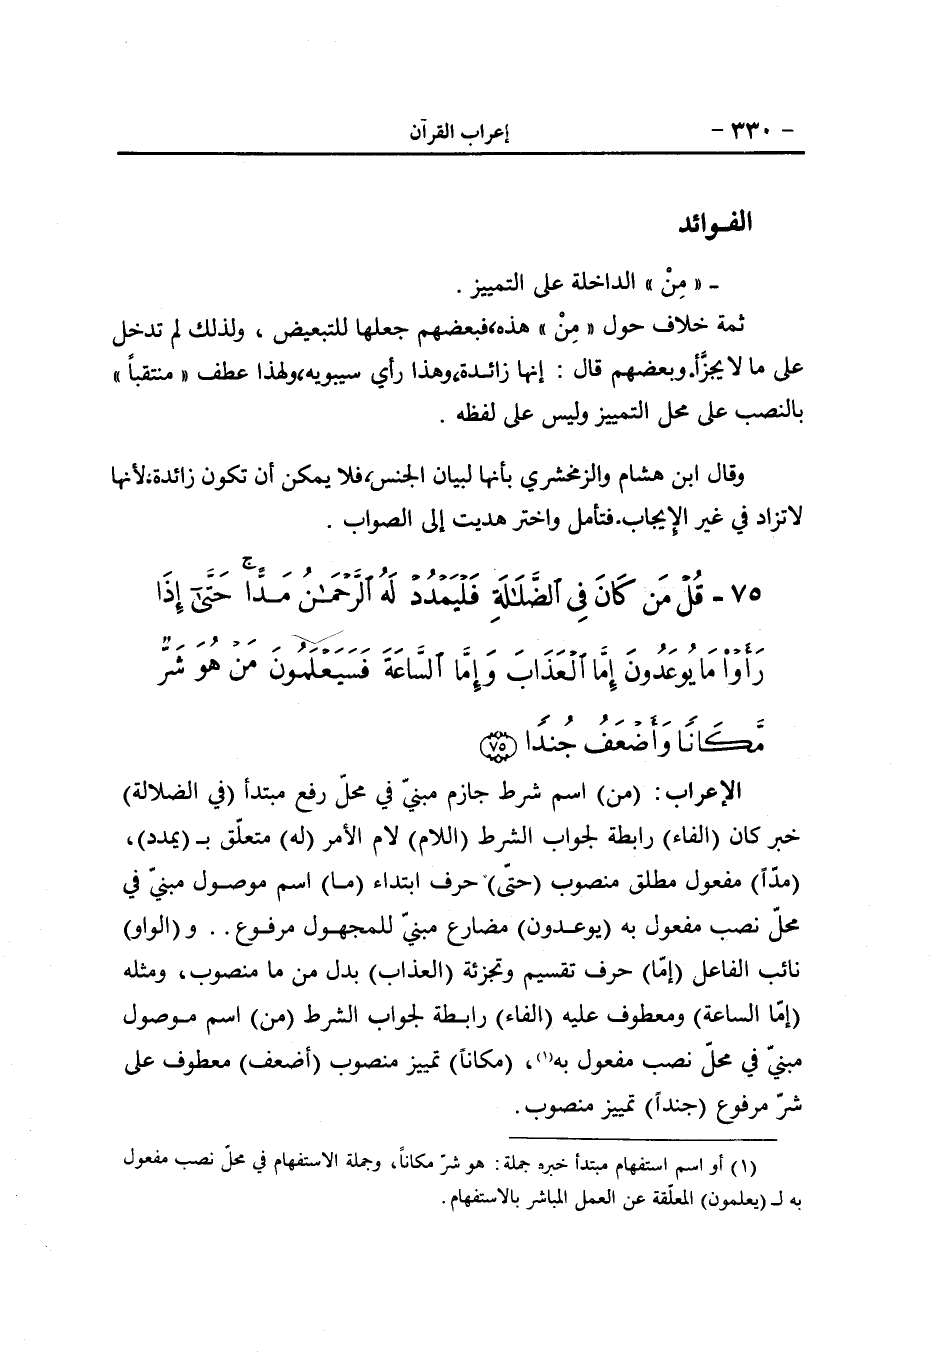 - ٣٣٠ -
إعراب القرآن
الفـوائد
ـ « مِنْ » الداخلة على التمييز .
ثمة خلاف حول « مِنْ » هذه،فبعضهم جعلها للتبعيض ، ولذلك لم تدخل
على ما لا يجزَّأ.وبعضهم قال : إنها زائـدة،وهذا رأي سيبويه،ولهذا عطف « منتقباً »
بالنصب على محل التمييز وليس على لفظه .
وقال ابن هشام والزمخشري بأنها لبيان الجنس،فلا يمكن أن تكون زائدة،لأنها
لاتزاد في غير الإيجاب.فتأمل واختر هديت إلى الصواب .
٧٥ - قُلْ مَن كَانَ فِي ٱلضَّلَٰلَةِ فَلْيَمْدُدْ لَهُ ٱلرَّحْمَٰنُ مَدًّا ۚ حَتَّىٰٓ إِذَا
رَأَوْا۟ مَا يُوعَدُونَ إِمَّا ٱلْعَذَابَ وَإِمَّا ٱلسَّاعَةَ فَسَيَعْلَمُونَ مَنْ هُوَ شَرٌّ
مَّكَانًا وَأَضْعَفُ جُندًا ٧٥
الإعراب: (من) اسم شرط جازم مبنيّ في محلّ رفع مبتدأ (في الضلالة)
خبر كان (الفاء) رابطة لجواب الشرط (اللام) لام الأمر (له) متعلّق بـ (يمدد)،
(مدّاً) مفعول مطلق منصوب (حتّى) حرف ابتداء (مـا) اسم موصـول مبنيّ في
محلّ نصب مفعول به (يوعـدون) مضارع مبنيّ للمجهـول مرفـوع.. و (الواو)
نائب الفاعل (إمّا) حرف تقسيم وتجزئة (العذاب) بدل من ما منصوب، ومثله
(إمّا الساعة) ومعطوف عليه (الفاء) رابـطة لجواب الشرط (من) اسم مـوصول
مبنيّ في محلّ نصب مفعول به(١)، (مكاناً) تمييز منصوب (أضعف) معطوف على
شرّ مرفوع (جنداً) تمييز منصوب.
(١) أو اسم استفهام مبتدأ خبره جملة: هو شرّ مكاناً، وجملة الاستفهام في محلّ نصب مفعول
به لـ (يعلمون) المعلّقة عن العمل المباشر بالاستفهام.